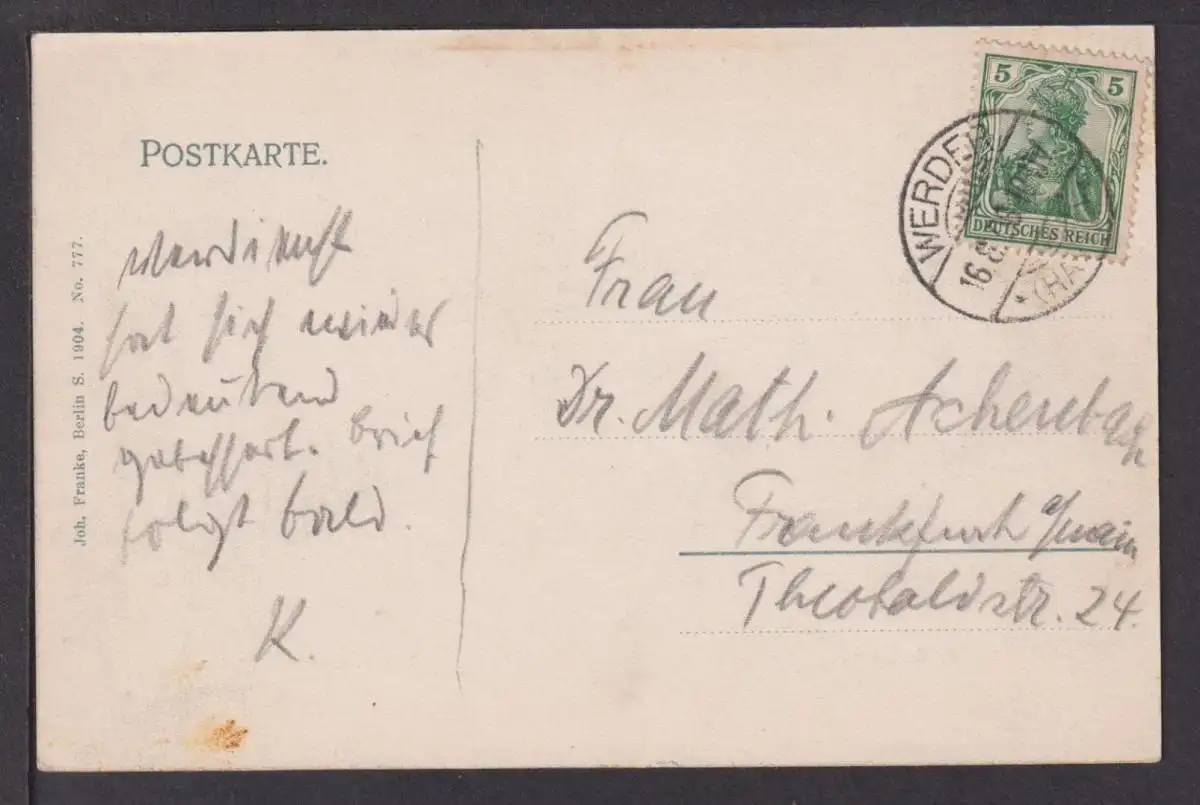 POSTKARTE.
hat sich wieder
bedeutend
gebessert. Brief
folgt bald.
K.
Joh. Franke, Berlin S. 1904. No. 777.
5 5
DEUTSCHES REICH
WERDER
16.8.
(HA
Frau
Dr. Math. Achenbach
Frankfurt a/Main
Theobaldstr. 24.